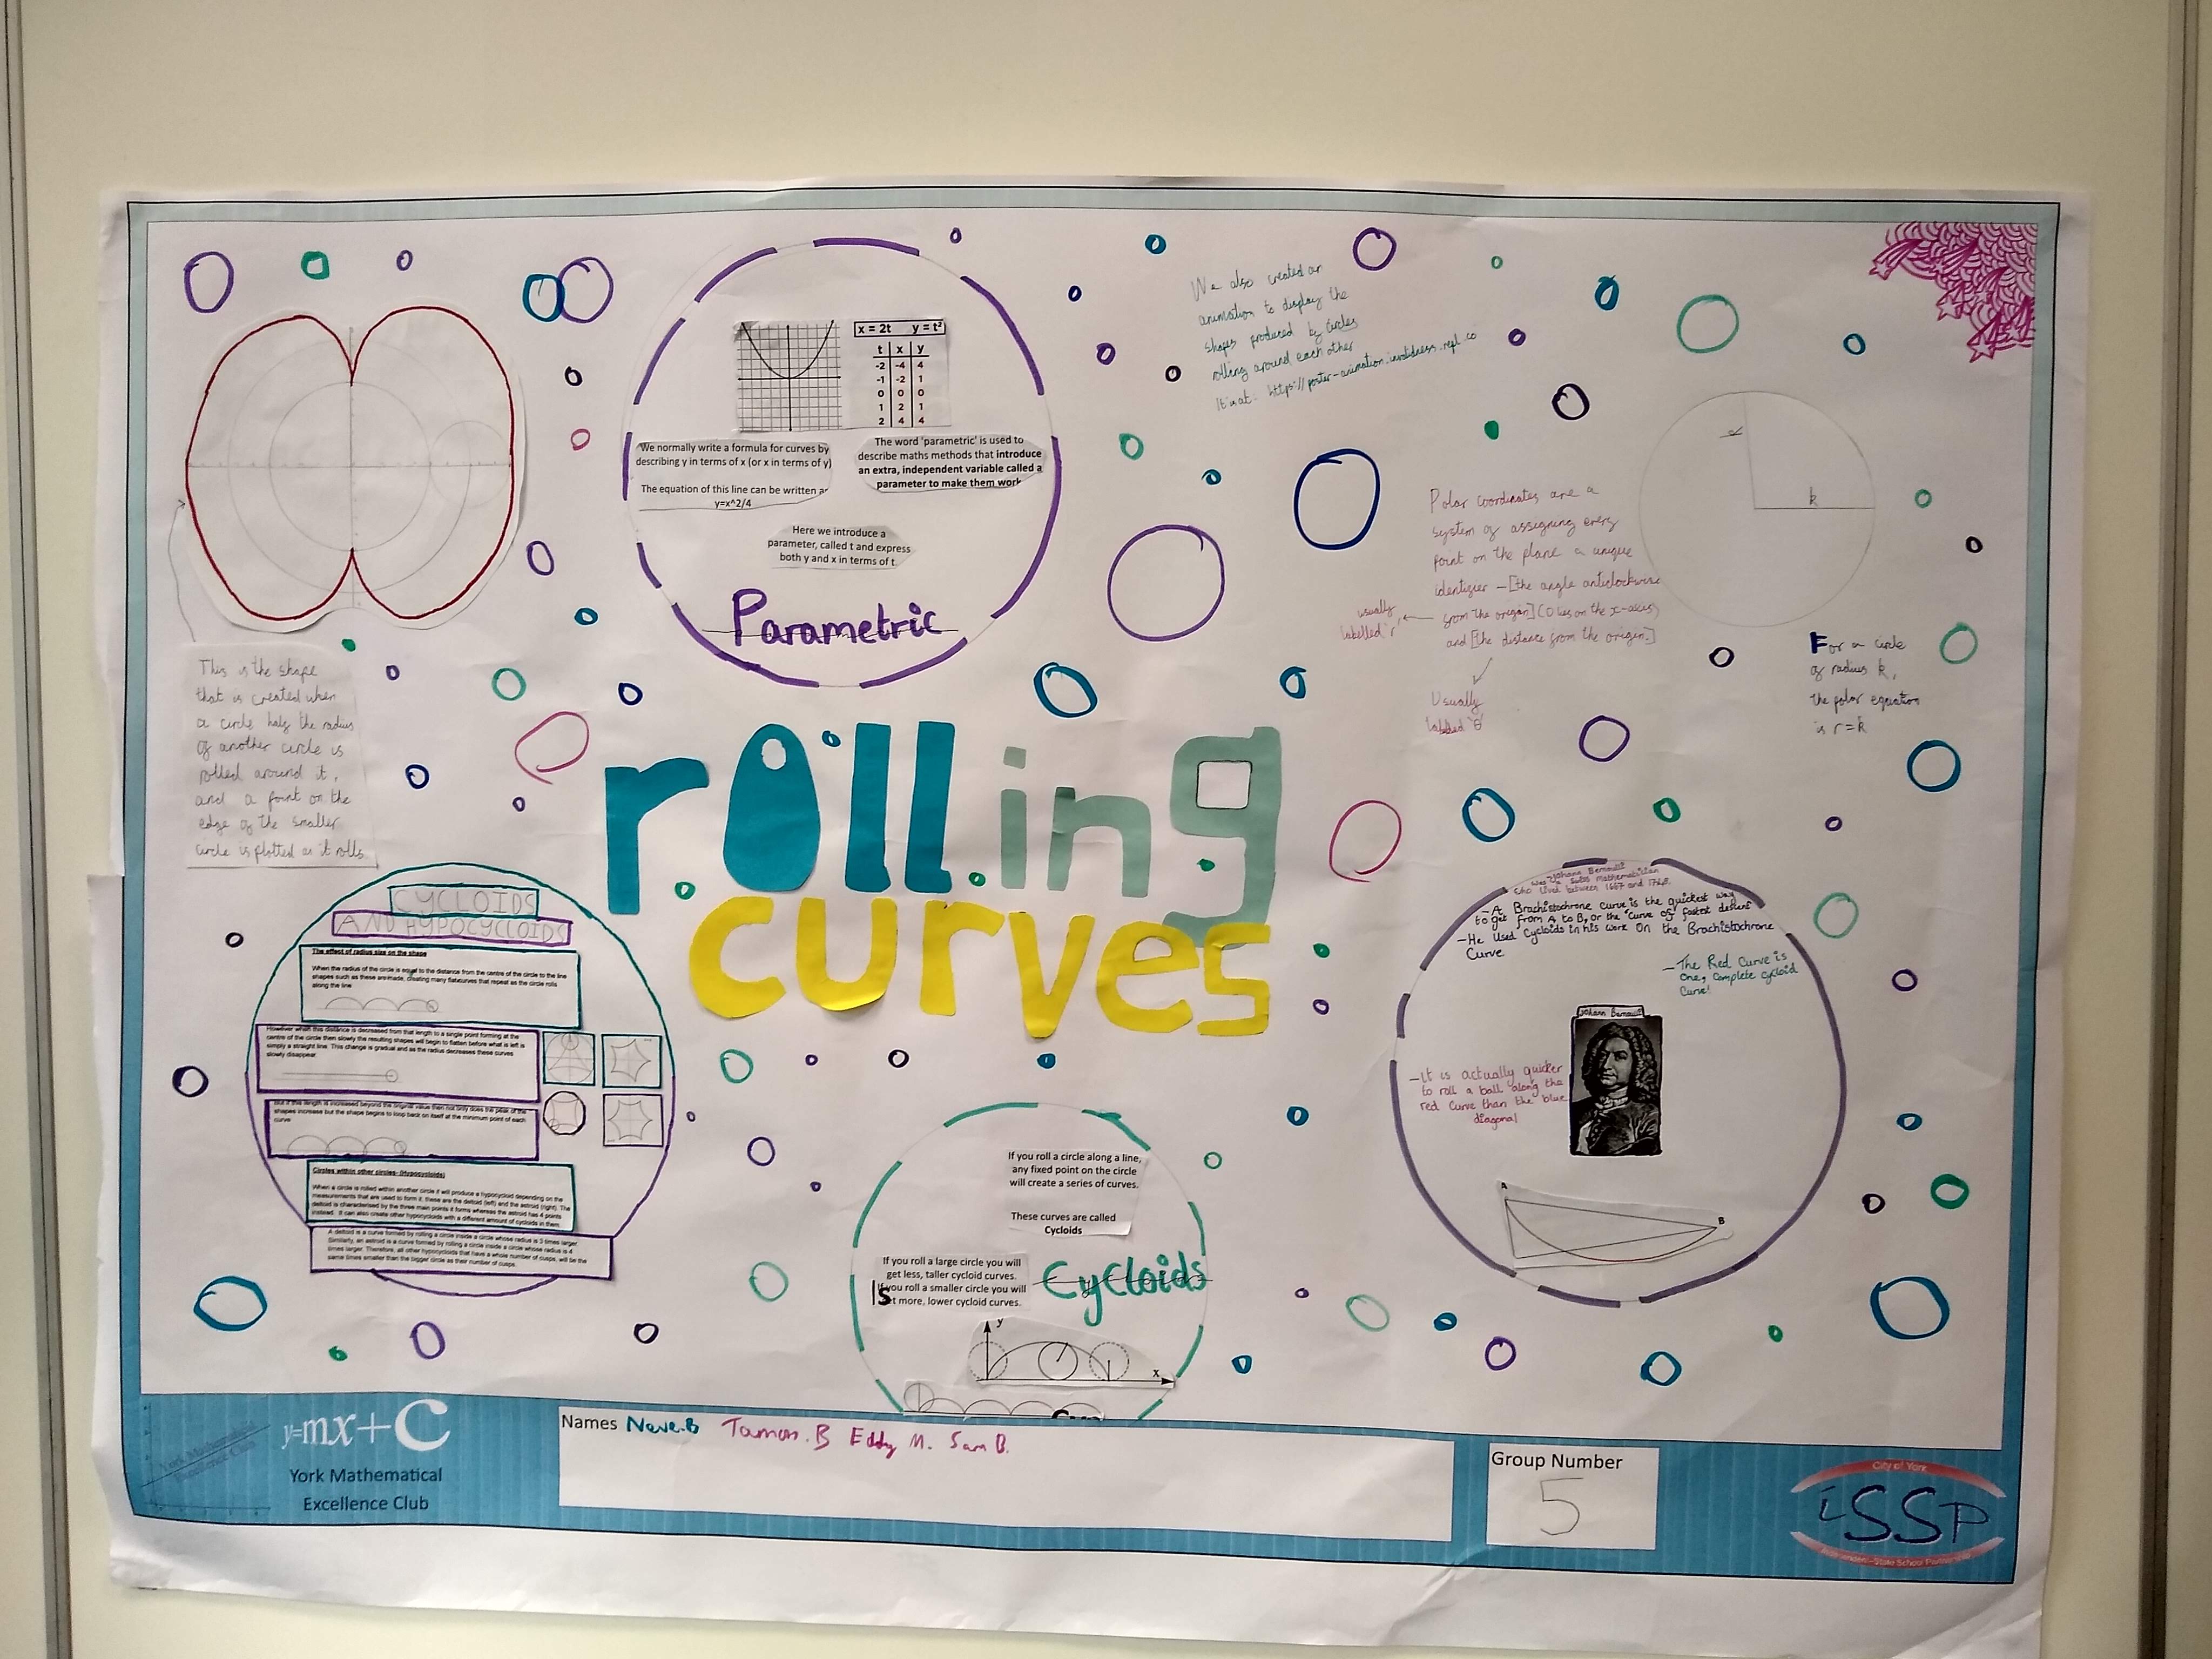 We also created an
animation to display the
shapes produced by circles
rolling around each other
It is at: https://poster-animation.invalidness.repl.co
x = 2t y = t²
t x y
-2 -4 4
-1 -2 1
0 0 0
1 2 1
2 4 4
We normally write a formula for curves by
describing y in terms of x (or x in terms of y)
The equation of this line can be written as
y=x^2/4
The word 'parametric' is used to
describe maths methods that introduce
an extra, independent variable called a
parameter to make them work
Here we introduce a
parameter, called t and express
both y and x in terms of t.
Parametric
Polar coordinates are a
system of assigning every
point on the plane a unique
identifier - [the angle anticlockwise
from the origin] (0 lies on the x-axis)
and [the distance from the origin.]
usually
labelled 'r'
Usually
labelled 'θ'
k
k
For a circle
of radius k,
the polar equation
is r=k
This is the shape
that is created when
a circle half the radius
of another circle is
rolled around it,
and a point on the
edge of the smaller
circle is plotted as it rolls.
rolling
curves
CYCLOIDS
AND HYPOCYCLOIDS
The effect of radius size on the shape
When the radius of the circle is equal to the distance from the centre of the circle to the line
shapes such as these are made, creating many flat curves that repeat as the circle rolls
along the line
However when this distance is decreased from that length to a single point forming at the
centre of the circle then slowly the resulting shapes will begin to flatten before what is left is
simply a straight line. This change is gradual and as the radius decreases these curves
slowly disappear.
But if this length is increased beyond the original value then not only does the peak of the
shapes increase but the shape begins to loop back on itself at the minimum point of each
curve
Circles within other circles- (Hypocycloids)
When a circle is rolled within another circle it will produce a hypocycloid depending on the
measurements that are used to form it. these are the deltoid (left) and the astroid (right). The
deltoid is characterised by the three main points it forms whereas the astroid has 4 points
instead. It can also create other hypocycloids with a different amount of cycloids in them.
A deltoid is a curve formed by rolling a circle inside a circle whose radius is 3 times larger.
Similarly, an astroid is a curve formed by rolling a circle inside a circle whose radius is 4
times larger. Therefore, all other hypocycloids that have a whole number of cusps, will be the
same times smaller than the bigger circle as their number of cusps.
If you roll a circle along a line,
any fixed point on the circle
will create a series of curves.
These curves are called
Cycloids
If you roll a large circle you will
get less, taller cycloid curves.
If you roll a smaller circle you will
get more, lower cycloid curves.
Cycloids
y
x
Johann Bernoulli
was a Swiss Mathematician
who lived between 1667 and 1748.
- A Brachistochrone curve is the quickest way
to get from A to B, or the 'curve of fastest descent'
- He used Cycloids in his work on the Brachistochrone
Curve.
- The Red Curve is
one, complete cycloid
curve!
Johann Bernoulli
- It is actually quicker
to roll a ball along the
red curve than the blue
diagonal
A
B
y=mx+c
York Mathematical
Excellence Club
Names Neve.B Taman.B Eddy M. Sam B.
Group Number
5
City of York
iSSP
Independent-State School Partnership